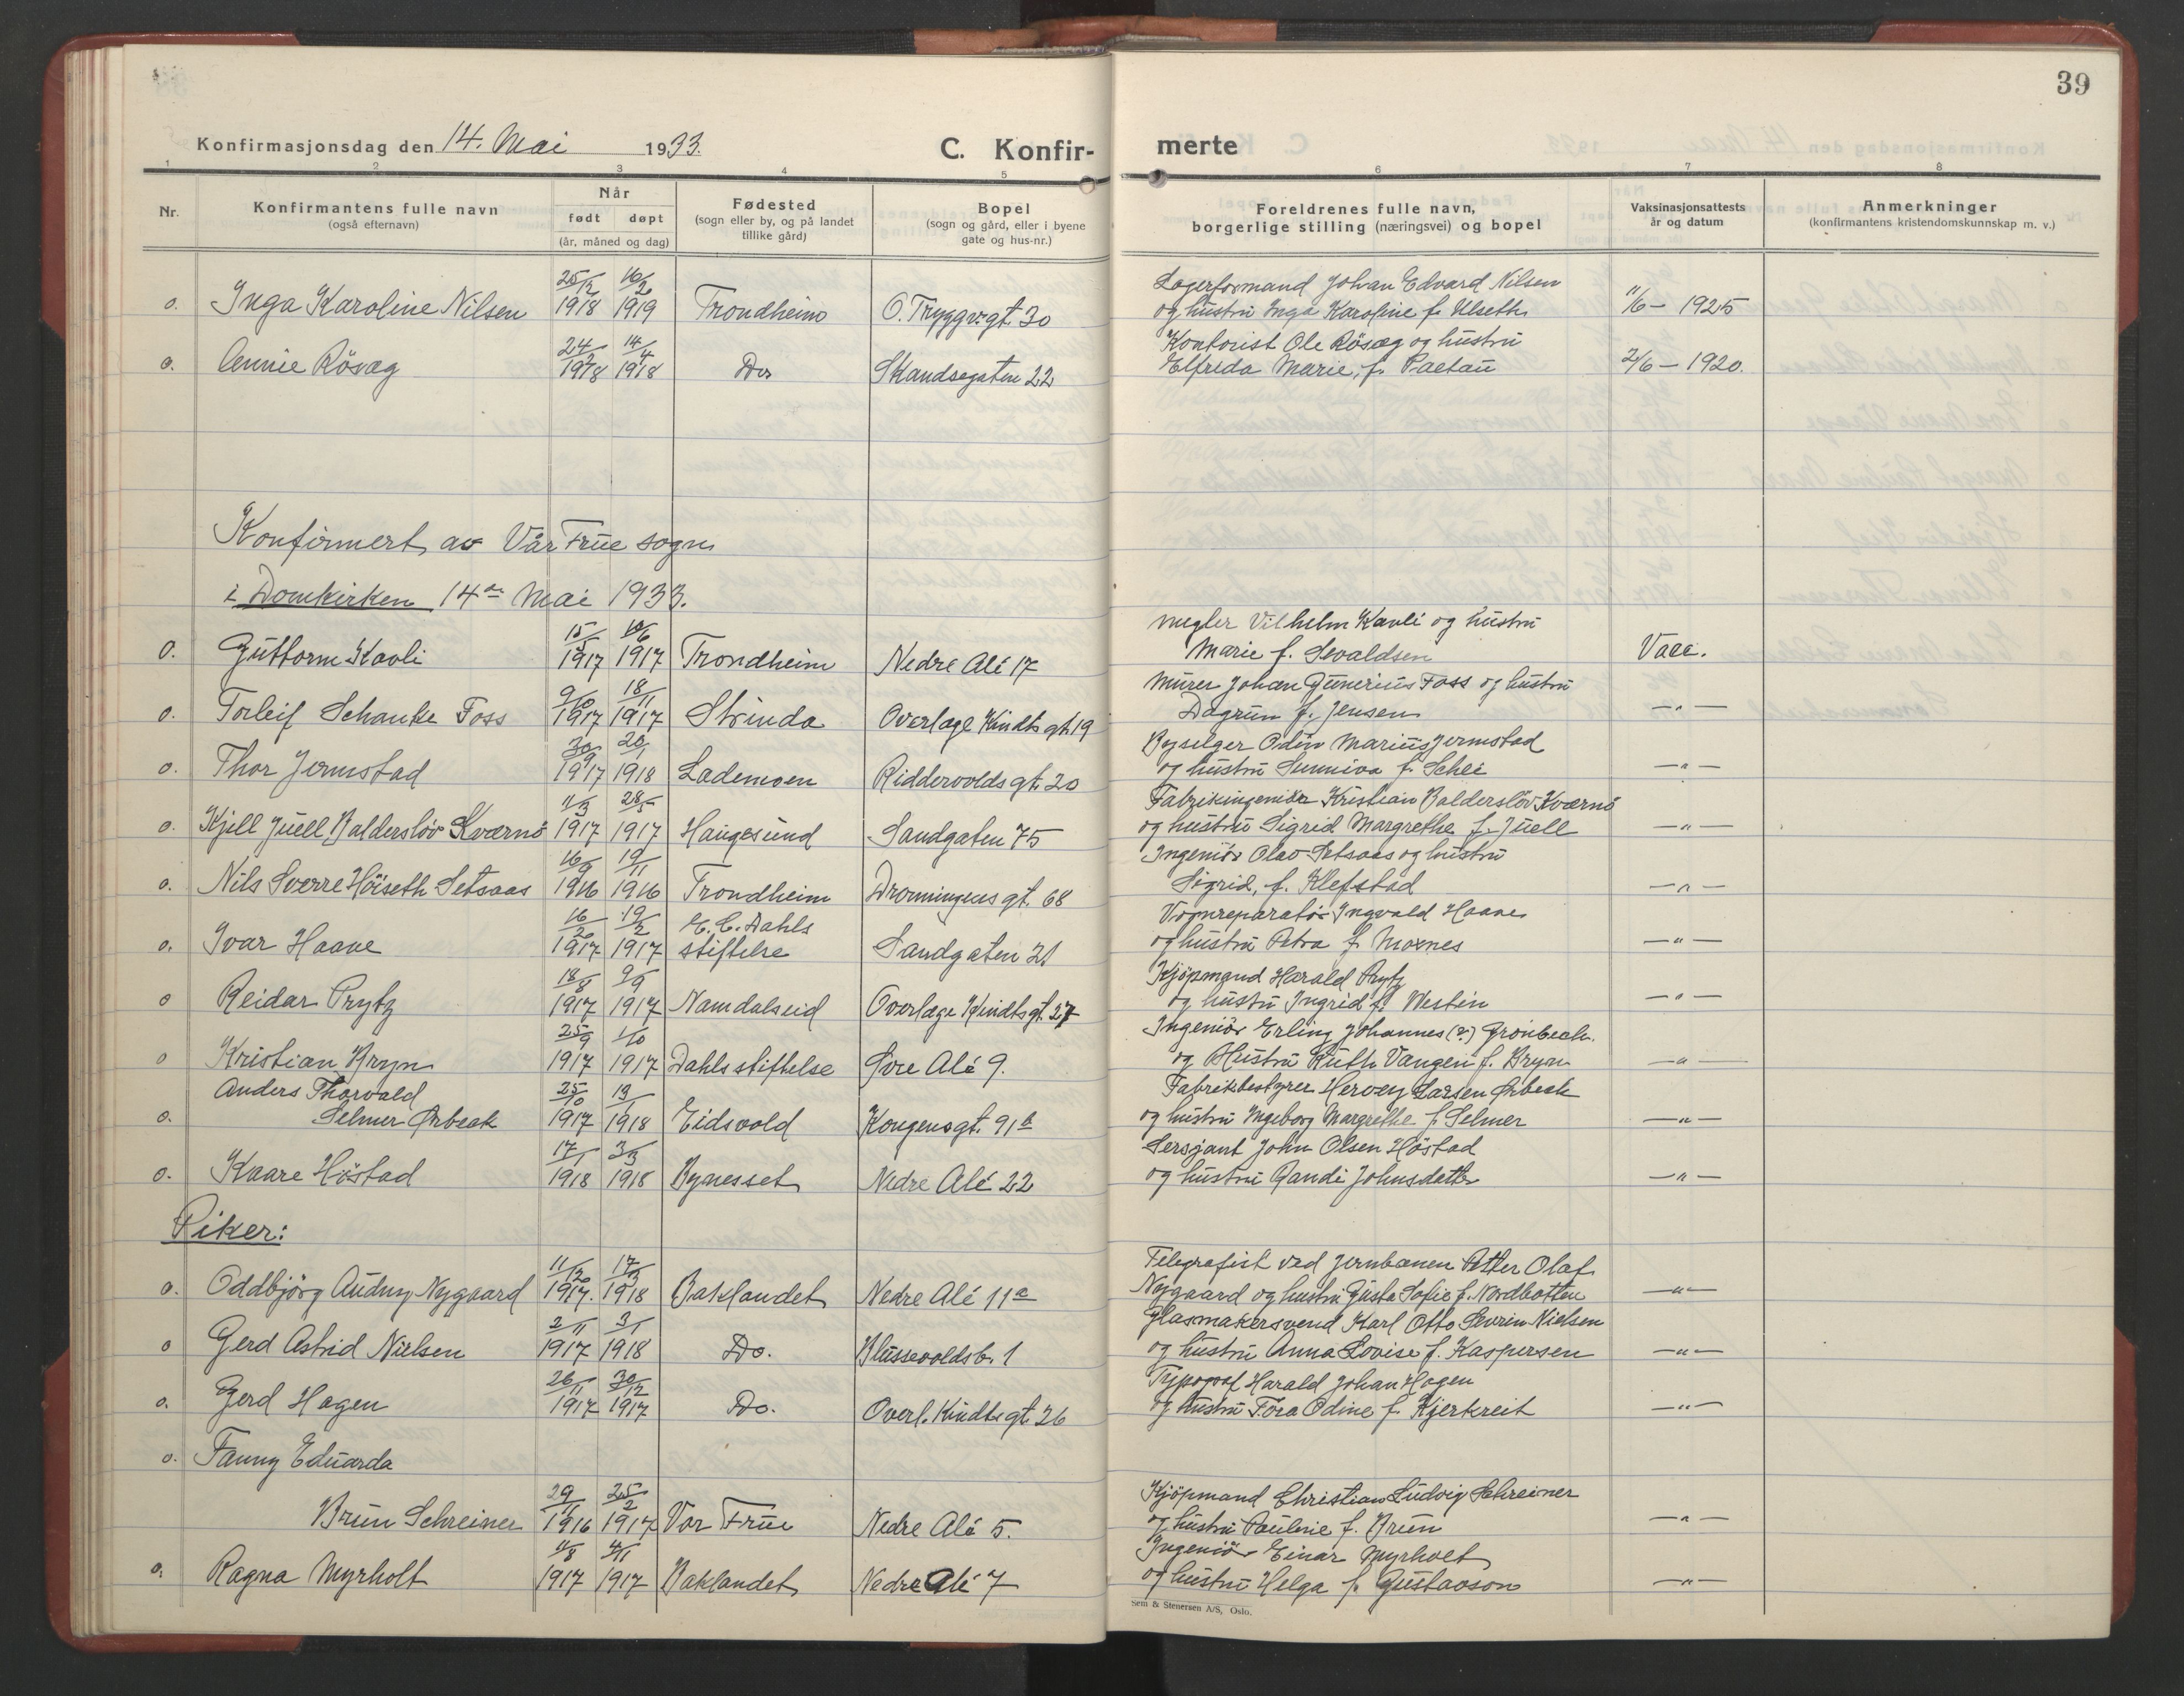 39
Konfirmasjonsdag den 14. Mai 1933.
C. Konfirmerte
1 2 3 4 5 6 7 8
Nr.
Konfirmantens fulle navn
(også efternavn)
Når
født døpt
(år, måned og dag)
Fødested
(sogn eller by, og på landet
tillike gård)
Bopel
(sogn og gård, eller i byene
gate og hus-nr.)
Foreldrenes fulle navn,
borgerlige stilling (næringsvei) og bopel
Vaksinasjonsattests
år og datum
Anmerkninger
(konfirmantens kristendomskunnskap m. v.)
25/12 16/2 Lagerformand Johan Edvard Nilsen
o. Inga Karoline Nilsen 1918 1919 Trondheim O. Tryggv.gt 30 og hustru Inga Karoline f. Ulseth 11/6 - 1925
24/2 14/4 Kontorist Ole Rösæg og hustru
o. Annie Rösæg 1918 1918 Do Skandsegaten 22 Elfreda Marie, f. Paetau 2/6 - 1920.
Konfirmert av Vår Frue sogn
i Domkirken 14de Mai 1933.
15/5 10/6 Megler Vilhelm Kavli og hustru
o. Guttorm Kavli 1917 1917 Trondheim Nedre Alé 17 Marie f. Sevaldsen Vacc.
9/10 18/11 Murer Johan Gunerius Foss og hustru
o. Torleif Schanke Foss 1917 1917 Strinda Overlæge Kindts gt 19 Dagrun f. Jensen -"-
30/9 20/1 Byselger Odin Marius Jermstad
o. Thor Jermstad 1917 1918 Lademoen Riddervolds gt. 20 og hustru Sunniva f. Schei -"-
11/3 28/5 Fabrikingeniör Kristian Balderslöv Kværnö
o. Kjell Juell Balderslöv Kværnö 1917 1917 Haugesund Sandgaten 75 og hustru Sigrid Margrethe f. Juell -"-
16/9 19/11 Ingeniör Olav Setsaas og hustru
o. Nils Sverre Höiseth Setsaas 1916 1916 Trondheim Dronningens gt. 68 Sigrid, f. Klefstad -"-
16/2 19/2 E. C. Dahls Vognreparatör Ingvald Haave
o. Ivar Haave 1917 1917 stiftelse Sandgaten 21 og hustru Petra f. Moxnes -"-
18/8 9/9 Kjöpmand Harald Prytz
o Reidar Prytz 1917 1917 Namdalseid Overlæge Kindts gt. 27 og hustru Ingrid f. Westin -"-
25/9 1/10 Ingeniör Erling Johannes (?) Grönbech
o Kristian Bryn 1917 1917 Dahls stiftelse Øvre Alé 9. og Hustru Ruth Vangen f. Bryn -"-
Anders Thorvald 25/10 13/1 Fabrikbestyrer Hervey Larsen Ørbeck
o. Selmer Ørbeck 1917 1918 Eidsvold Kongens gt. 91b og hustru Ingeborg Margrethe f. Selmer -"-
17/1 3/3 Sersjant John Olsen Höstad
o. Kaare Höstad 1918 1918 Bynesset Nedre Alé 22 og hustru Randi Johnsdatter -"-
Piker:
11/12 17/3 Telegrafist ved jernbanen Petter Olaf
o. Oddbjörg Audny Nygaard 1917. 1918 Baklandet Nedre Alé 11a Nygaard og hustru Gusta Sofie f. Nordbotten -"-
2/11 3/1 Glasmakersvend Karl Otto Sevrin Nielsen
o Gerd Astrid Nielsen 1917 1918 Do. Blussevoldsb. 1 og hustru Anna Lovise f. Kaspersen -"-
26/11 30/12 Typograf Harald Johan Hagen
o. Gerd Hagen 1917 1917 Do. Overl. Kindts gt. 26 og hustru Tora Odine f. Kjerkreit -"-
o. Fanny Eduarda
29/11 25/2 Kjöpmand Christian Ludvig Schreiner
Brun Schreiner 1916 1917 Vor Frue Nedre Alé 5. og hustru Pauline f. Brun -"-
11/8 4/11 Ingeniör Einar Myrholt
o. Ragna Myrholt 1917 1917 Baklandet Nedre Alé 7 og hustru Helga f. Gustavson -"-
Sem & Stenersen A/S, Oslo.